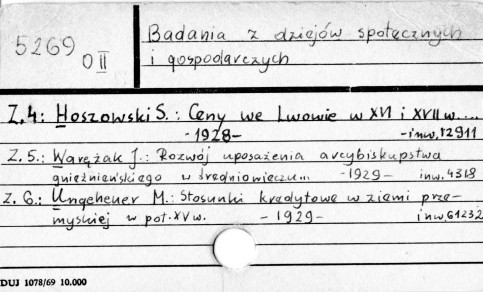 5269 O II
Badania z dziejów społecznych
i gospodarczych
Z. 4: Hoszowski S.: Ceny we Lwowie w XVI i XVII w....
- 1928 - - inw. 12911
Z. 5.: Warężak J.: Rozwój uposażenia arcybiskupstwa
gnieźnieńskiego w średniowieczu... - 1929 - inw. 4318
Z. 6.: Ungeheuer M.: Stosunki kredytowe w ziemi prze-
myskiej w poł. XV w. - 1929 - inw. 61232
DUJ 1078/69 10.000